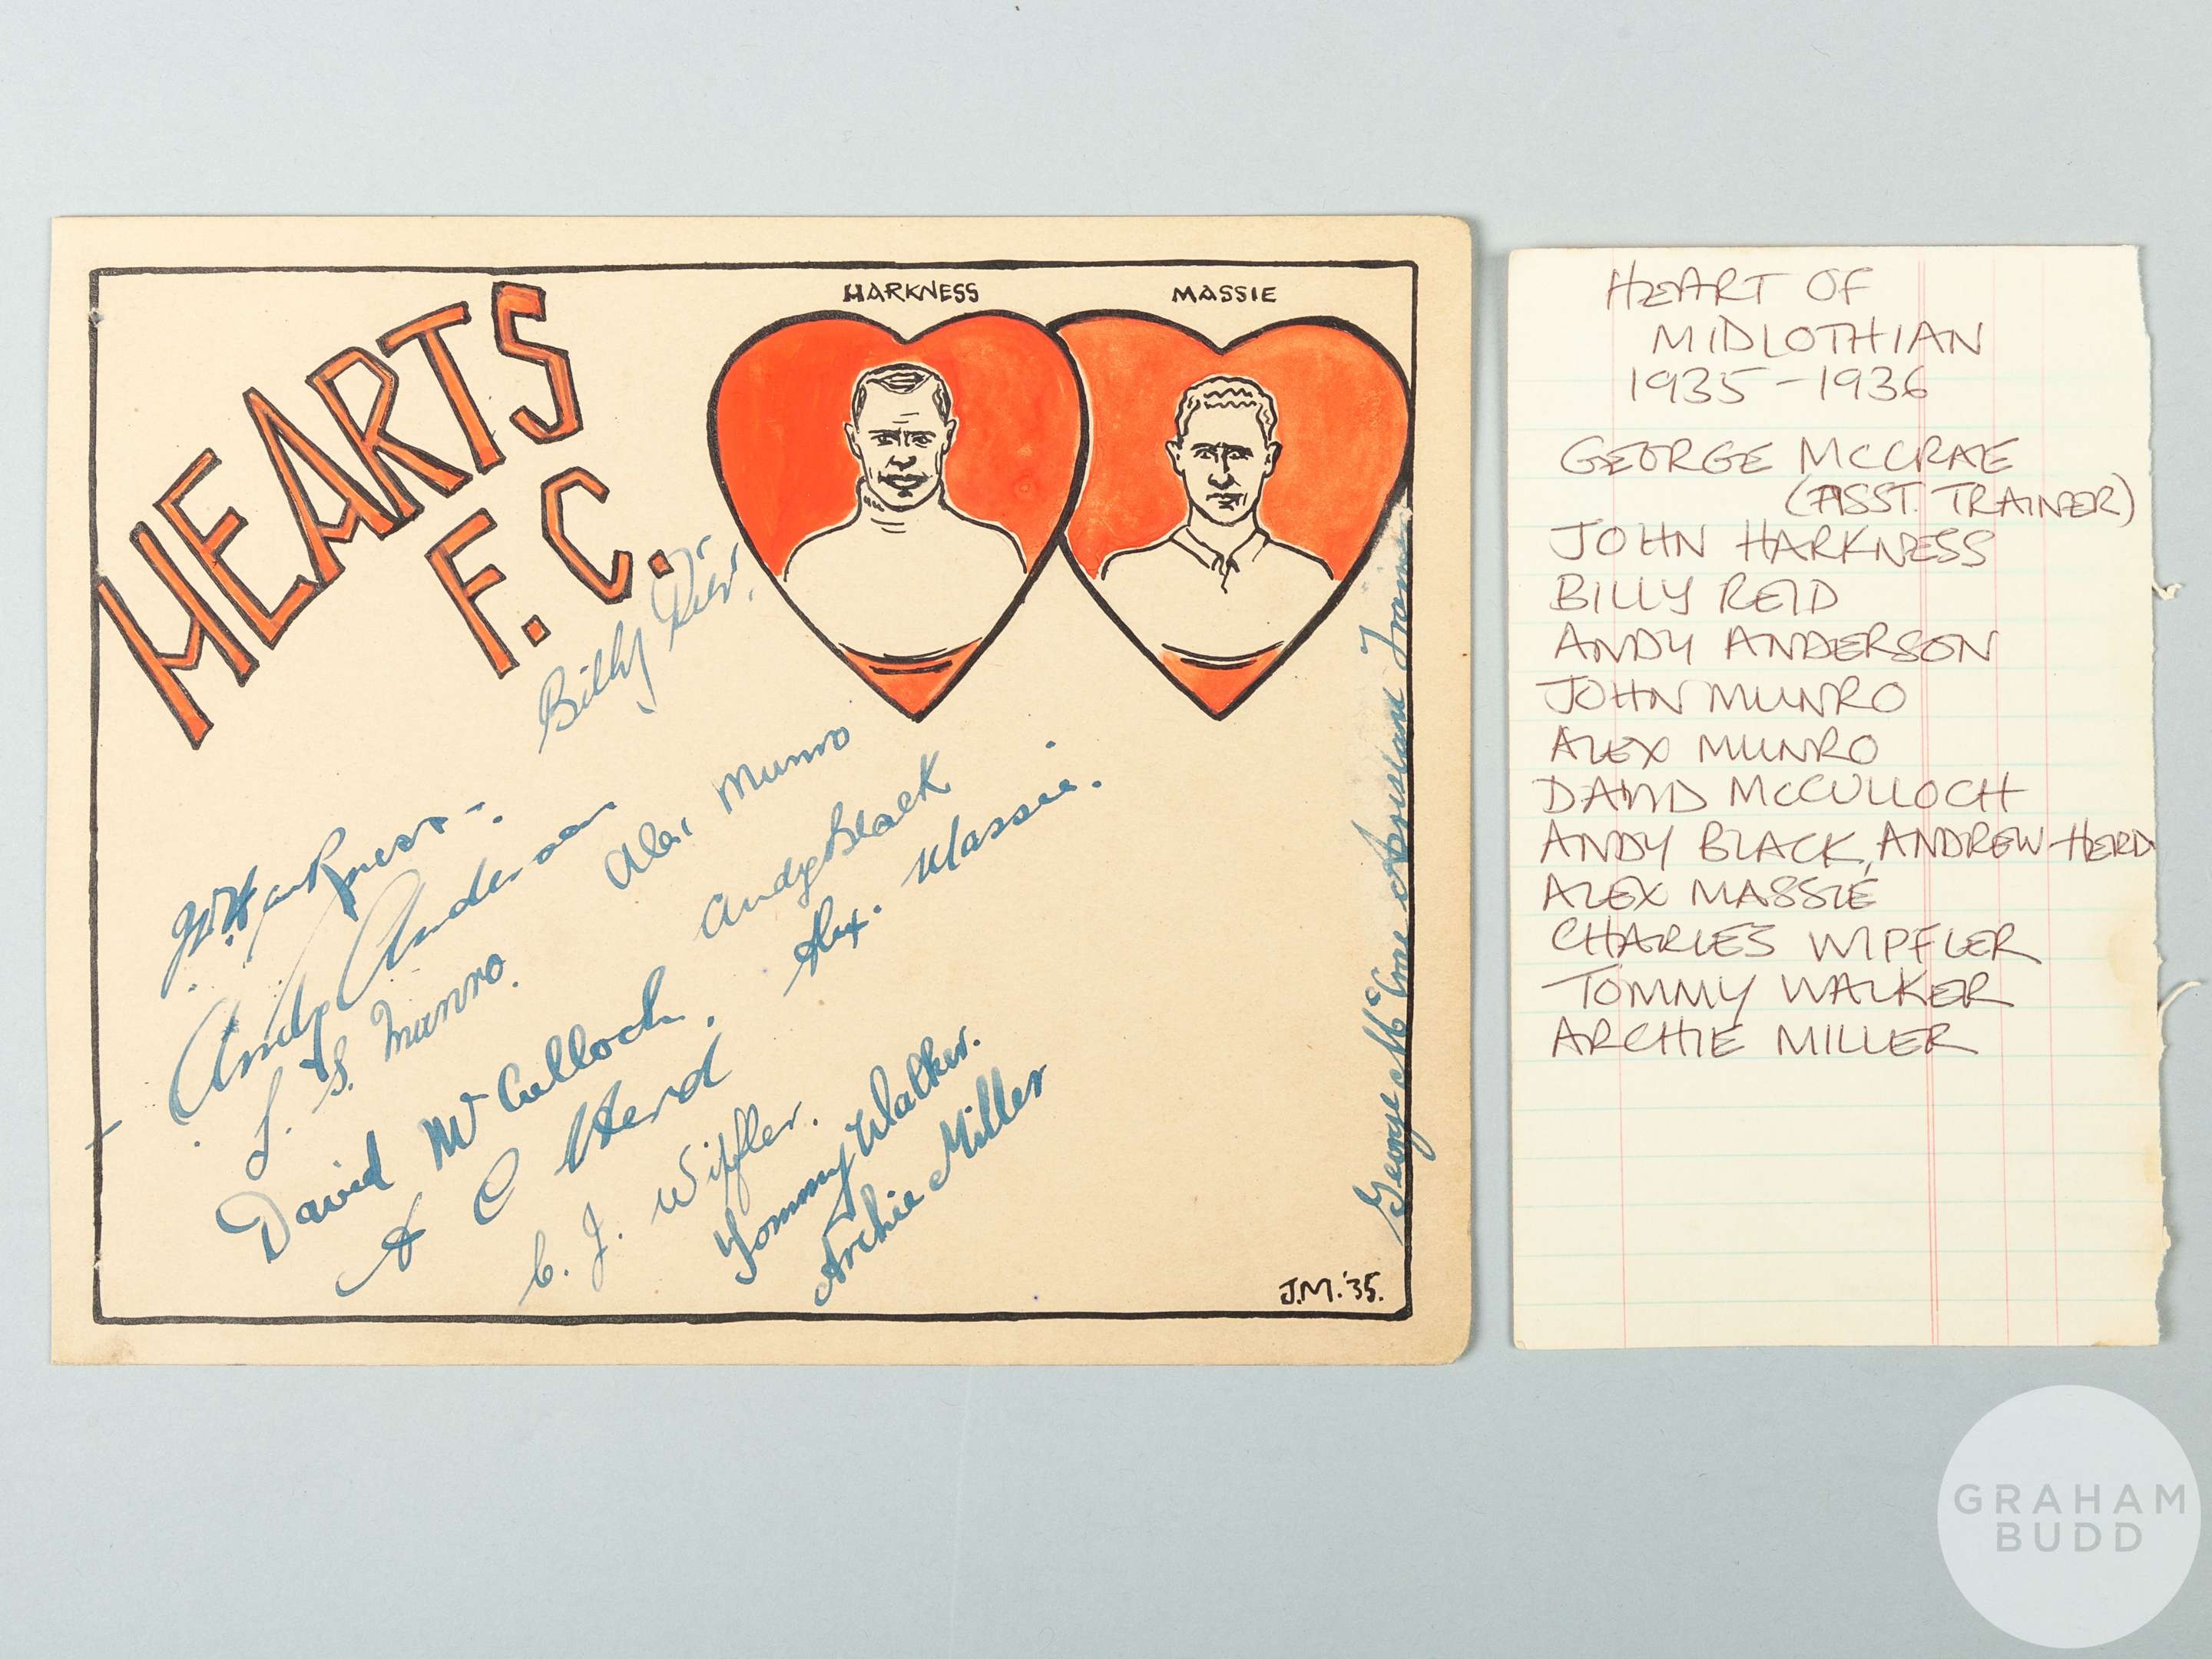 HEARTS
F.C.
HARKNESS
MASSIE
Billy Reid
J. Harkness
Andy Anderson
Alex Munro
J. S. Munro.
Andy Black
David McCulloch.
Alex. Massie.
A C Herd
C. J. Wipfler.
Tommy Walker.
Archie Miller
George McCrae Assistant Trainer
J.M. '35.
HEART OF
MIDLOTHIAN
1935-1936
GEORGE MCCRAE
(ASST. TRAINER)
JOHN HARKNESS
BILLY REID
ANDY ANDERSON
JOHN MUNRO
ALEX MUNRO
DAVID MCCULLOCH
ANDY BLACK, ANDREW HERD
ALEX MASSIE
CHARLES WIPFLER
TOMMY WALKER
ARCHIE MILLER
GRAHAM
BUDD